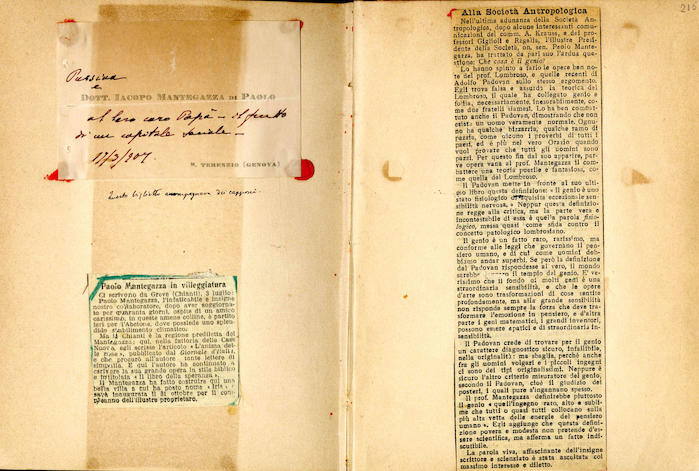 e
DOTT. IACOPO MANTEGAZZA DI PAOLO
al loro caro Papà – il frutto
di un capitale
17/3/907.
S. TERENZIO (GENOVA)
Questo biglietto accompagnava dei
Paolo Mantegazza in villeggiatura
Ci scrivono da Greve (Chianti), 3 luglio:
Paolo Mantegazza, l'infaticabile e insigne
nostro collaboratore, dopo aver soggiorna-
to per quaranta giorni, ospite di un amico
carissimo, in queste amene colline, è partito
ieri per l'Abetone, dove possiede uno splen-
dido stabilimento climatico.
Ma il Chianti è la regione prediletta del
Mantegazza: qui, nella fattoria delle Case
Nuova, egli scrisse l'articolo « L'anima del-
le rose », pubblicato dal Giornale d'Italia,
e che procurò all'autore tante lettere di
simpatia. E qui l'autore ha continuato a
scrivere la sua grande opera in stile biblico
e intitolata « Il libro della speranza ».
Il Mantegazza ha fatto costruire qui una
bella villa a cui ha posto nome
sarà inaugurata il di ottobre per il com-
pleanno dell'illustre proprietario.
215
Alla Società Antropologica
Nell'ultima adunanza della Società An-
tropologica, dopo alcune interessanti comu-
nicazioni del comm. A. Krauss, e dei pro-
fessori Giglioli e Regalia, l'illustre Presi-
dente della Società, on. sen. Paolo Mante-
gazza, ha trattato da pari suo l'ardua que-
stione: Che cosa è il genio?
Lo hanno spinto a farlo le opere ben no-
te del prof. Lombroso, e quelle recenti di
Adolfo Padovan sullo stesso argomento.
Egli trova falsa e assurda la teorica del
Lombroso, il quale ha collegato genio e
follia, necessariamente, inesorabilmente, co-
me due fratelli siamesi. Lo ha ben combat-
tuto anche il Padovan, dimostrando che non
esista un uomo veramente normale. Ognu-
no ha qualche bizzarria, qualche ramo di
pazzia, come dicono i proverbi di tutti i
paesi, ed è più nel vero Orazio quando
vuol provare che tutti gli uomini sono
pazzi. Per questo fin dal suo apparire, par-
ve opera vana al prof. Mantegazza il com-
battere una teoria puerile e fantasiosa, co-
me quella del Lombroso.
Il Padovan mette in fronte al suo ulti-
mo libro questa definizione: « Il genio è uno
stato fisiologico di squisita eccezionale sen-
sibilità nervosa. » Neppur questa definizione
regge alla critica, ma la parte vera e
incontestabile di essa è quella parola fisio-
logico, messa quasi come sfida contro il
concetto patologico lombrosiano.
Il genio è un fatto raro, rarissimo, ma
conforme alle leggi che governano il pen-
siero umano, e di cui come uomini deb-
biamo andar superbi. Se però la definizione
del Padovan rispondesse al vero, il mondo
sarebbe il tempio del genio. E' ve-
rissimo che il fondo di molti geni è una
straordinaria sensibilità, e che le opere
d'arte sono trasformazioni di cose sentite
profondamente, ma alla grande sensibilità
non risponde sempre la forza che deve tra-
sformare l'emozione in pensiero, e d'altra
parte i geni matematici, i grandi inventori,
possono essere apatici e di straordinaria in-
sensibilità.
Il Padovan crede di trovare per il genio
un carattere diagnostico sicuro, infallibile,
nella originalità; ma sbaglia, perchè anche
fra gli uomini volgari e i piccoli ingegni
ci sono dei tipi originalissimi. Neppure è
sicuro l'altro criterio misuratore del genio,
secondo il Padovan, cioè il giudizio dei
posteri, i quali pure s'ingannano spesso.
Il prof. Mantegazza definirebbe piuttosto
il genio « quell'ingegno raro, alto e subli-
me che tutti o quasi tutti collocano sulla
più alta vetta delle energie del pensiero
umano ». Egli aggiunge che questa defini-
zione povera e modesta non pretende d'es-
sere scientifica, ma afferma un fatto indi-
scutibile.
La parola viva, affascinante dell'insigne
scrittore e scienziato è stata ascoltata col
massimo interesse e diletto.